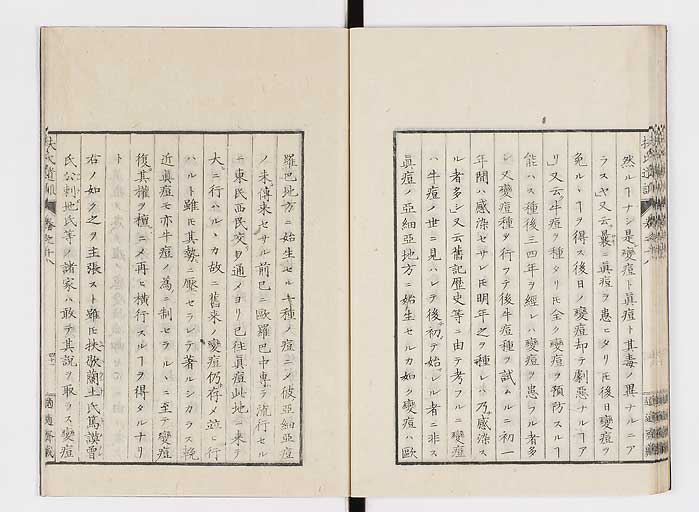 然ルヿナシ是變痘ト眞痘ト其毒ノ異ナルニア
ラスヤ又云曩ニ眞痘ヲ患ヒタリ𪜈後日變痘ヲ
免ルヽヿヲ得ス後日ノ變痘却テ劇悪ナルヿア
リ又云牛痘ヲ種タリ𪜈全ク變痘ヲ預防スルヿ
能ハス種後三四年ヲ經レハ變痘ヲ患ラル者多
シ又變痘種ヲ行フテ後牛痘種ヲ試ムルニ初一
年間ハ感染セサレ𪜈明年之ヲ種レハ乃感染ス
ル者多シ又云舊記歴史等ニ由テ考フルニ變痘
ハ牛痘ノ世ニ見ハレテ後初テ始シル者ニ非ス
眞痘ノ亞細亞地方ニ始生セルカ如ク變痘ハ歐
羅巴地方ニ始生セル一種ノ痘ニメ彼亞細亞痘
ノ未傳来セサル前已ニ歐羅巴中專ラ流行セル
ニ東氏西民交ヲ通メヨリ已往眞痘此地ニ来テ
大ニ行ハル丶カ故ニ舊来ノ變痘仍存メ並ヒ行
ハルト雖𪜈其勢ニ壓セラレテ著ルシカラス輓
近眞痘モ亦牛痘ノ爲ニ制セラルヽニ至テ變痘
復其權ヲ檀ニメ再ヒ横行スルヿヲ得タルナリ
ト
右ノ如ク之ヲ主張スト雖𪜈扶歇蘭土氏篤謨曽
氏公刺地氏等ノ諸家ハ敢テ其説ヲ取ラス變痘
扶氏遺訓
適適齋藏